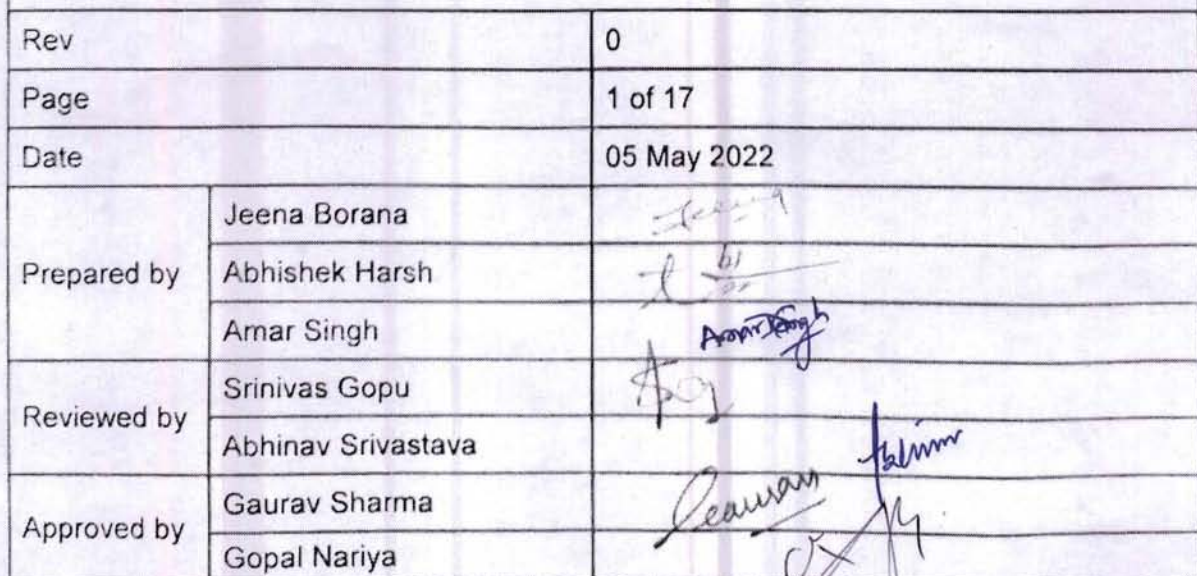 Rev 0
Page 1 of 17
Date 05 May 2022
Prepared by
Jeena Borana
Abhishek Harsh
Amar Singh Amar Singh
Reviewed by
Srinivas Gopu
Abhinav Srivastava
Approved by
Gaurav Sharma Gaurav
Gopal Nariya